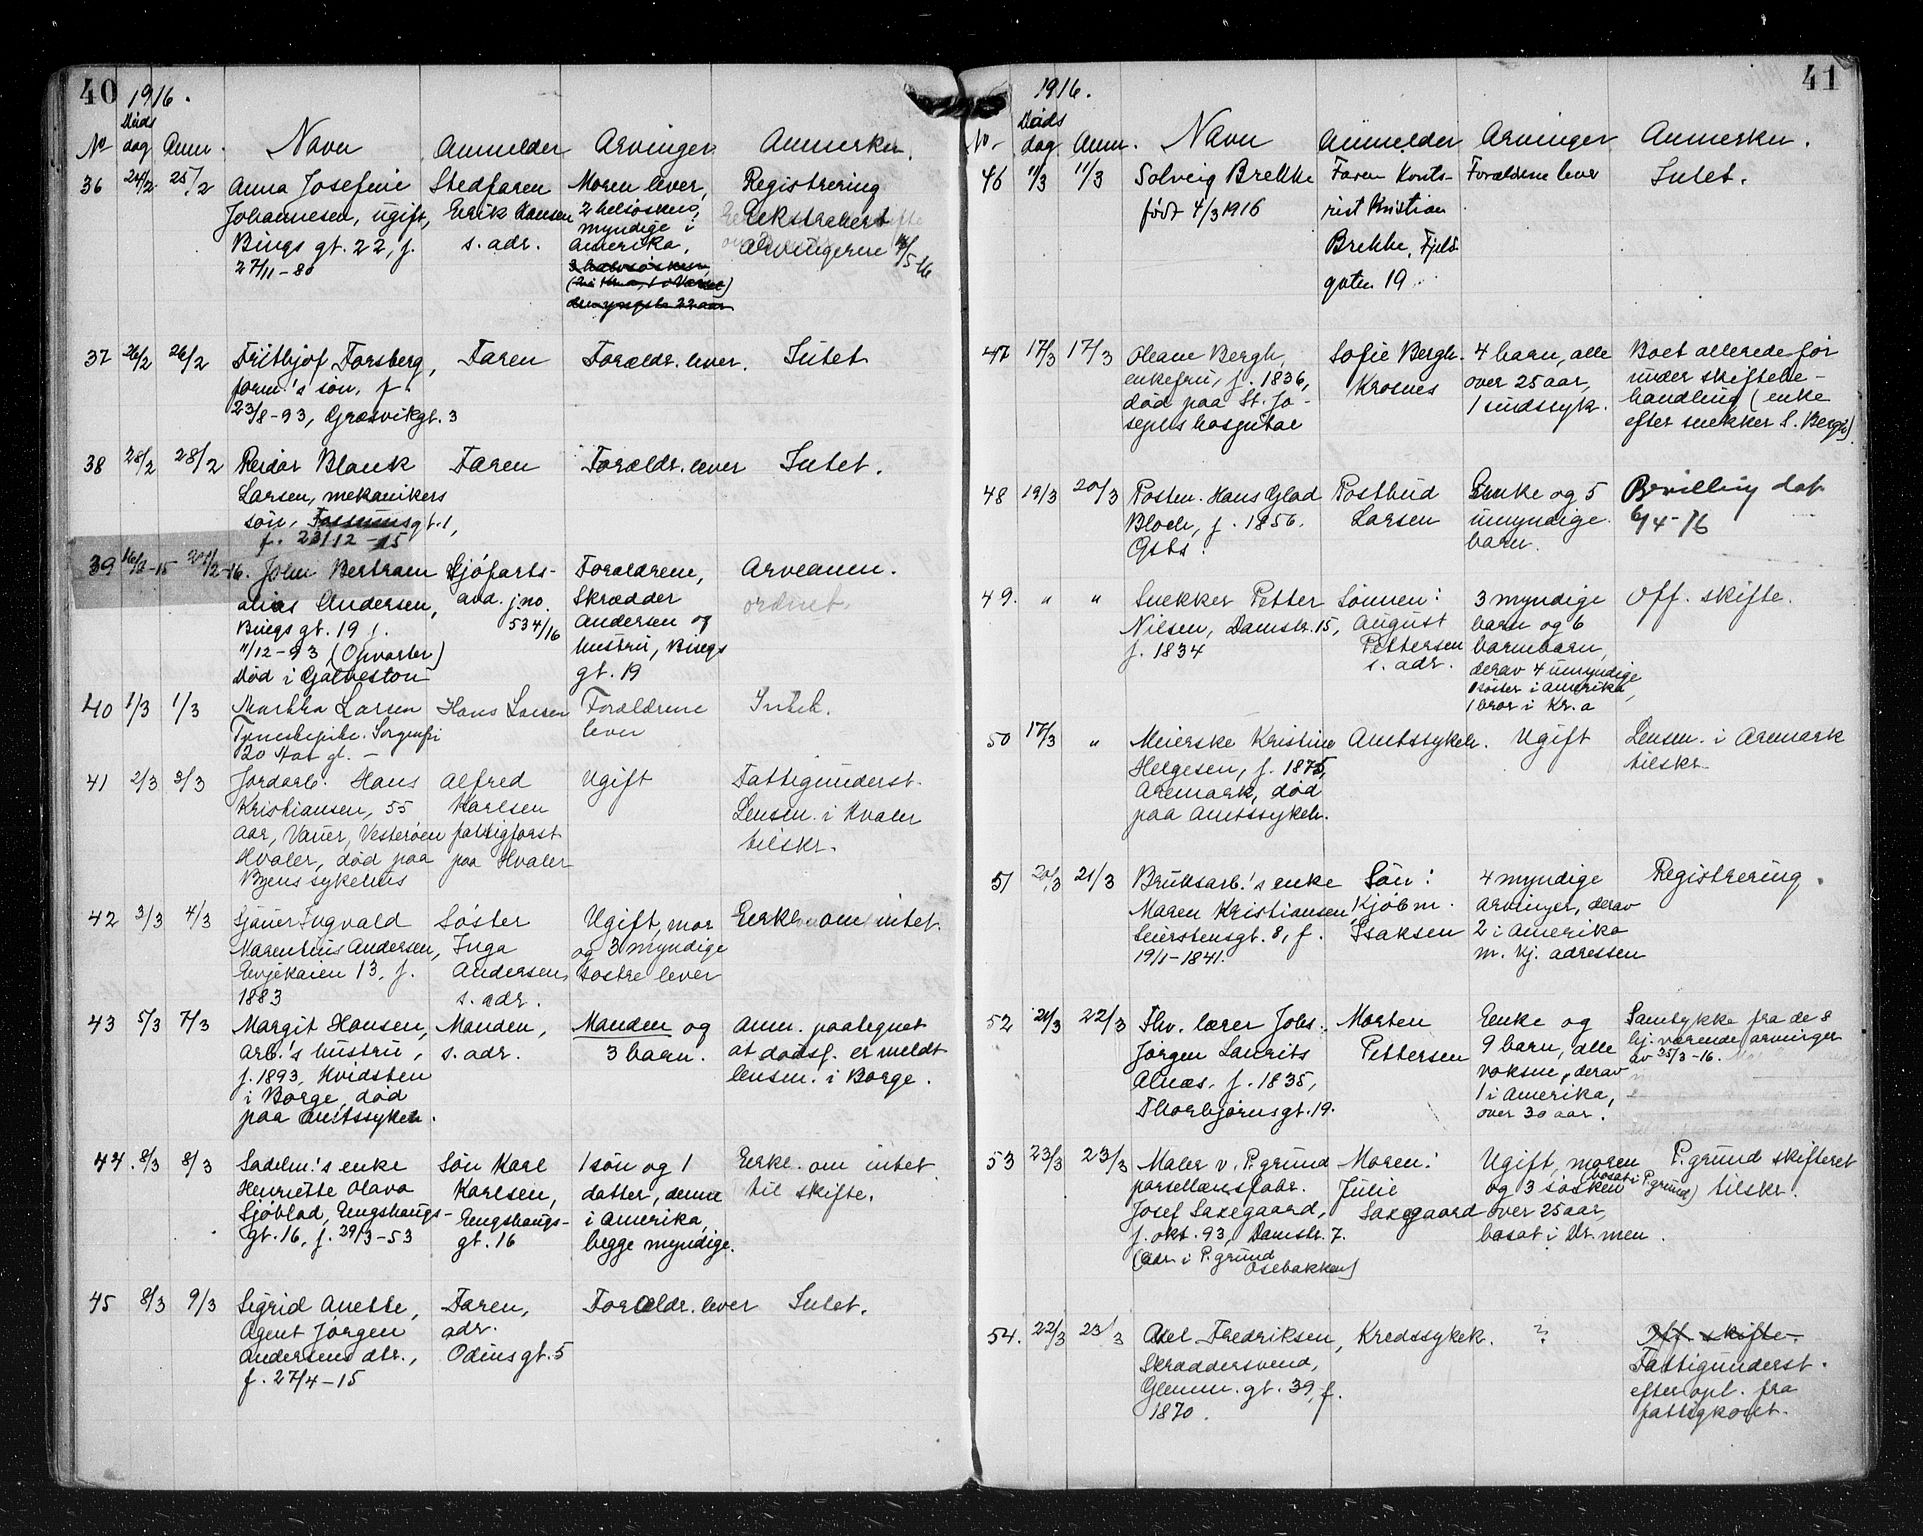 40
1916.
Döds
No dag Anm. Navn Anmelder Arvinger Anmerkn.
36 24/2 25/2 Anna Josefine Stedfaren Moren lever, Registrering
Johannesen, ugift, Erik Hansen 2 helsøsken, Ekstraheret
Bings gt. 22, f. s. adr. myndige i arvingerne
27/11-86 Amerika,
3 halvsøsken,
den yngste 22 aar
37 26/2 26/2 Frithjof Forsberg, Faren Forældr. lever. Intet
form.'s søn, f.
23/8-93, Græsvikgt. 3
38 28/2 28/2 Reidar Blank Faren Forældr. lever Intet.
Larsen, mekanikers
søn, Fossumsgt. 1,
f. 23/12-15
39 John Bertram Sjöfarts- Forældrene, Arveanm.
alias Andersen, avd. jno. Skrædder ordnet.
Bingsgt. 19, f. 534/16 Andersen og
11/12-93, (Opvarter) hustru, Bings
död i Galveston gt. 19
40 1/3 1/3 Martha Larsen Hans Larsen Forældrene Intet.
Sorgenfri lever
41 2/3 3/3 Jordarb. Hans Alfred Ugift Fattigunderst.
Kristiansen, 55 Karlsen Lensm. i Hvaler
aar, Vauer, Vesterøen fattigforst. tilskr.
Hvaler, död paa paa Hvaler
Byens sykehus
42 3/3 4/3 Sjauer Ingvald Søster Ugift, mor Erkl. om intet.
Marentius Andersen, Inga og 3 myndige
Evjekaien 13, f. Andersen, søstre lever
1883 s. adr.
43 5/3 7/3 Margit Hansen, Manden, Manden og Anm. paategnet
arb.'s hustru, s. adr. 3 barn. at dødsf. er meldt
f. 1893, Hvidsten lensm. i Borge.
i Borge, död
paa Amtssykeh.
44. 8/3 8/3 Sadelm.'s enke Søn Karl 1 søn og 1 Erkl. om intet
Henriette Olava Karlsen, datter, denne til skifte.
Sjöblad, Engshaugs- Engshaugs- i Amerika,
gt. 16, f. 29/3-53 gt. 16 begge myndige.
45 8/3 9/3 Sigrid Anette, Faren, Forældr. lever Intet.
Agent Jørgen adr.
Andersens dtr., Odinsgt. 5
f. 27/4-15
41
1916.
Döds
No. dag Anm. Navn Anmelder Arvinger Anmerkn.
46 11/3 11/3 Solveig Brekke Faren Konto- Forældrene lever Intet.
født 4/3 1916 rist Kristian
Brekke, Fjeld-
gaten 19.
47 17/3 17/3 Oleane Bergh, Sofie Bergh. 4 barn, alle Boet allerede før
enkefru, f. 1836, Krosnes over 25 aar, under skiftebe-
død paa St. Jo- 1 sindssyk. handling (enke
sephs hospital efter snekker S. Bergh).
48 19/3 20/3 Postm. Hans Glad Postbud Enke og 5 Bevilling dat
Bloch, f. 1856. Larsen umyndige 6/4-16
barn.
49. " " Snekker Petter Sønnen: 3 myndige Off. skifte.
Nilsen, Damstr. 15, August barn og 6
f. 1834 Pettersen barnebarn,
s. adr. derav 4 umyndige
1 søster i Amerika,
1 bror i Kr.a
50 17/3 " Meierske Kristine Amtssykeh. Ugift Lensm. i Aremark
Helgesen, f. 1875, tilskr.
Aremark, død
paa Amtssykeh.
51 20/3 21/3 Bruksarb.'s enke Søn: 4 myndige Registrering.
Maren Kristiansen, Kjøbm. arvinger, derav
Seierstensgt. 8, f. Isaksen 2 i Amerika
19/1-1841. m. kj. adressen
52 21/3 22/3 Fhv. lærer Johs. Morten Enke og Samtykke fra de 8
Jørgen Laurits Pettersen 9 barn, alle hj. værende arvinger
Alnæs, f. 1835, voksne, derav av 25/3-16.
Thorbjørnsgt. 19. 1 i Amerika,
over 30 aar.
53 23/3 23/3 Maler v. P.grund Moren: Ugift, moren P.grund skifteret
porsellænsfabr. Julie (bosat i P.grund) og 3 søsken tilskr.
Josef Saxegaard, Saxegaard over 25 aar,
f. okt. 93, Damstr. 7. bosat i Dr.men.
(adr. i P.grund
Osebakken)
54. 22/3 23/3 Axel Fredriksen, Kredssykeh. ? Off. skifte.
Skræddersvend, Fattigunderst.
Glemm. gt. 39, f. efter opl. fra
1870. fattigkont.